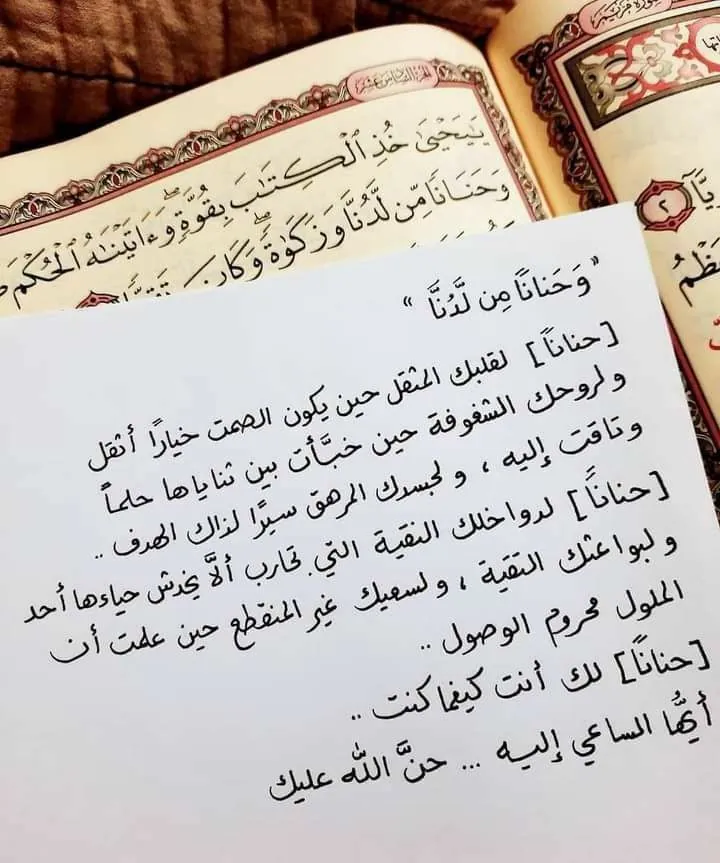 الجزء السادس عشر
يَٰيَحْيَىٰ خُذِ ٱلْكِتَٰبَ بِقُوَّةٍۖ وَءَاتَيْنَٰهُ ٱلْحُكْمَ
وَحَنَانًا مِّن لَّدُنَّا وَزَكَوٰةًۖ وَكَانَ تَقِيًّا
"وَحَنانًا مِن لَّدُنَّا"
[حنانًا] لقلبك المثقل حين يكون الصمت خيارًا أثقل
ولروحك الشغوفة حين خبَّأت بين ثناياها حلماً
وتاقت إليه ، ولجسدك المرهق سيرًا لذاك الهدف ..
[حنانًا] لدواخلك النقية التي تحارب ألَّا يخدش حياءها أحد
ولبواعثك التقية ، ولسعيك غير المنقطع حين علمت أن
الملول محروم الوصول ..
[حنانًا] لك أنت كيفما كنت ..
أيُّها الساعي إليه ... حنَّ الله عليك
٢